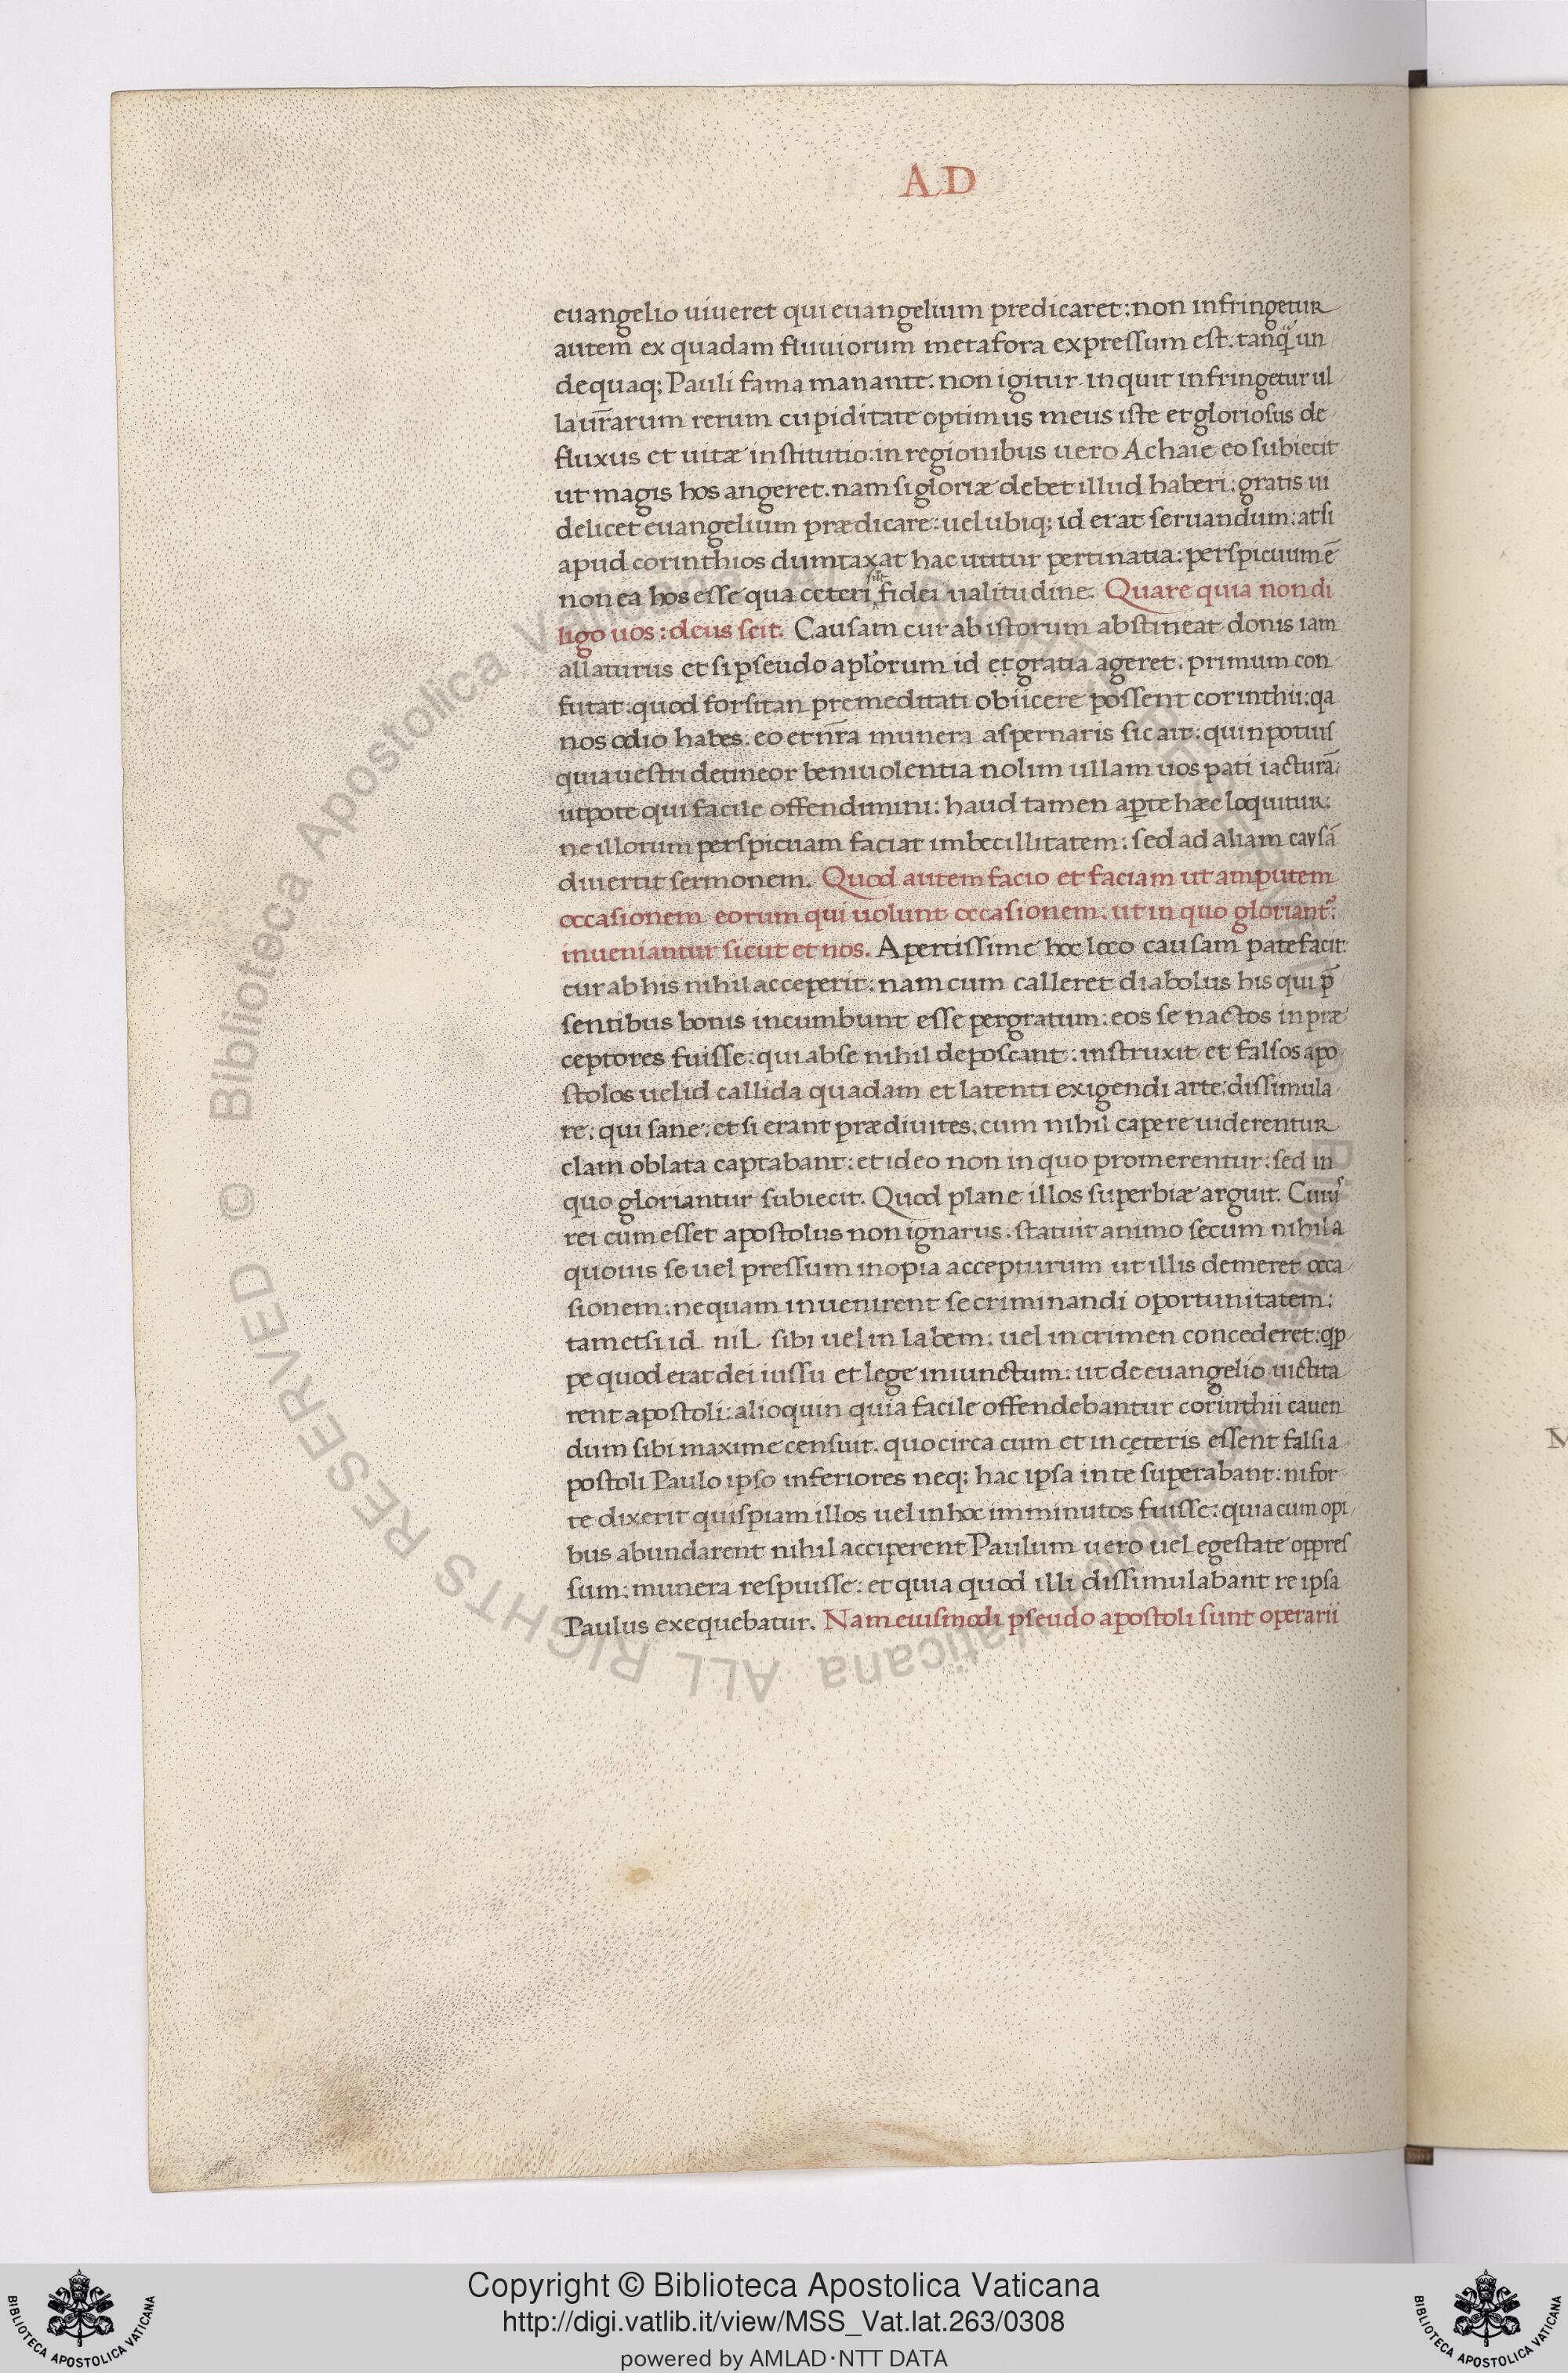 A D
euangelio uiueret qui euangelium predicaret: non infringetur
autem ex quadam fluuiorum metafora expressum est. tanq̃ un
dequaq; Pauli fama manante. non igitur inquit infringetur ul
la ur̃arum rerum cupiditate optimus meus iste et gloriosus de
fluxus et uitæ institutio: in regionibus uero Achaie eo subiecit
ut magis hos angeret. nam si gloriæ debet illud haberi: gratis ui
delicet euangelium prædicare: uel ubiq; id erat seruandum: at si
apud corinthios dumtaxat hac utitur pertinatia: perspicuum ē
non ea hos esse qua ceteri fidei ualitudine. Quare quia non di
ligo uos: deus scit. Causam cur ab istorum abstineat donis iam
allaturus et si pseudo apl'orum id et gratia ageret. primum con
futat: quod forsitan premeditati obiicere possent corinthii: qa
nos odio habes. eo et nr̃a munera aspernaris sic ait: quin potius
quia uestri detineor beniuolentia nolim ullam uos pati iacturã:
utpote qui facile offendimini: haud tamen aperte hæc loquitur:
ne illorum perspicuam faciat imbecillitatem: sed ad aliam causã
diuertit sermonem. Quod autem facio et faciam ut amputem
occasionem eorum qui uolunt occasionem: ut in quo gloriant':
inueniantur sicut et nos. Apertissime hoc loco causam patefacit:
cur ab his nihil acceperit: nam cum calleret diabolus his qui p̃
sentibus bonis incumbunt esse pergratum: eos se nactos in præ
ceptores fuisse: qui ab se nihil deposcant: instruxit et falsos apo
stolos uel id callida quadam et latenti exigendi arte: dissimula
re: qui sane: et si erant prædiuites, cum nihil capere uiderentur
clam oblata captabant: et ideo non in quo promerentur: sed in
quo gloriantur subiecit. Quod plane illos superbiæ arguit. Cuius
rei cum esset apostolus non ignarus. statuit animo secum nihil a
quouis se uel pressum inopia accepturum ut illis demeret occa
sionem: nequam inuenirent se criminandi oportunitatem:
tametsi id nil sibi uel in labem: uel in crimen concederet: q̃p
pe quod erat dei iussu et lege iniunctum: ut de euangelio uictita
rent apostoli: alioquin quia facile offendebantur corinthii cauen
dum sibi maxime censuit. quocirca cum et in ceteris essent falsi a
postoli Paulo ipso inferiores neq; hac ipsa in re superabant: ni for
te dixerit quispiam illos uel in hoc imminutos fuisse: quia cum opi
bus abundarent nihil acciperent Paulum uero uel egestate oppres
sum: munera respuisse: et quia quod illi dissimulabant re ipsa
Paulus exequebatur. Nam eiusmodi pseudo apostoli sunt operarii
Biblioteca Apostolica Vaticana ALL RIGHTS RESERVED ©
Copyright © Biblioteca Apostolica Vaticana
http://digi.vatlib.it/view/MSS_Vat.lat.263/0308
powered by AMLAD·NTT DATA
BIBLIOTECA APOSTOLICA VATICANA
BIBLIOTECA APOSTOLICA VATICANA